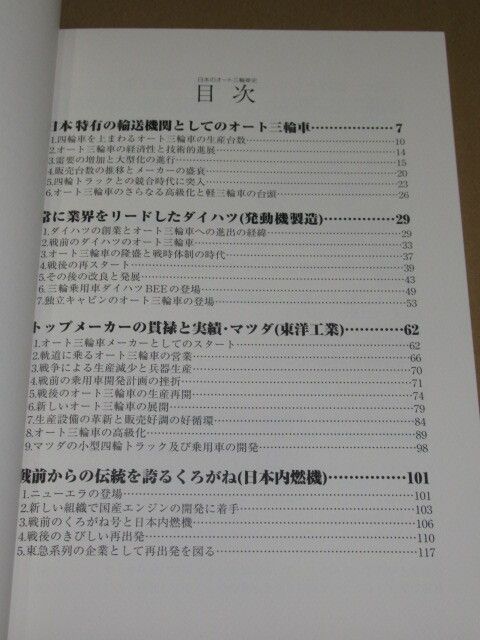 日本のオート三輪車史
目次
日本特有の輸送機関としてのオート三輪車………………7
1.四輪車を上まわるオート三輪車の生産台数………………10
2.オート三輪車の経済性と技術的進展………………14
3.需要の増加と大型化の進行………………15
4.販売台数の推移とメーカーの盛衰………………20
5.四輪トラックとの競合時代に突入………………23
6.オート三輪車のさらなる高級化と軽三輪車の台頭………………26
常に業界をリードしたダイハツ(発動機製造)………………29
1.ダイハツの創業とオート三輪車への進出の経緯………………29
2.戦前のダイハツのオート三輪車………………33
3.オート三輪車の隆盛と戦時体制の時代………………37
4.戦後の再スタート………………39
5.その後の改良と発展………………43
6.三輪乗用車ダイハツBEEの登場………………49
7.独立キャビンのオート三輪車の登場………………53
トップメーカーの貫禄と実績・マツダ(東洋工業)…………62
1.オート三輪車メーカーとしてのスタート………………62
2.軌道に乗るオート三輪車の営業………………66
3.戦争による生産減少と兵器生産………………70
4.戦前の乗用車開発計画の挫折………………71
5.戦後のオート三輪車の生産再開………………74
6.新しいオート三輪車の展開………………79
7.生産設備の革新と販売好調の好循環………………84
8.オート三輪車の高級化………………89
9.マツダの小型四輪トラック及び乗用車の開発………………98
戦前からの伝統を誇るくろがね(日本内燃機)………………101
1.ニューエラの登場………………101
2.新しい組織で国産エンジンの開発に着手………………103
3.戦前のくろがね号と日本内燃機………………106
4.戦後のきびしい再出発………………110
5.東急系列の企業として再出発を図る………………117